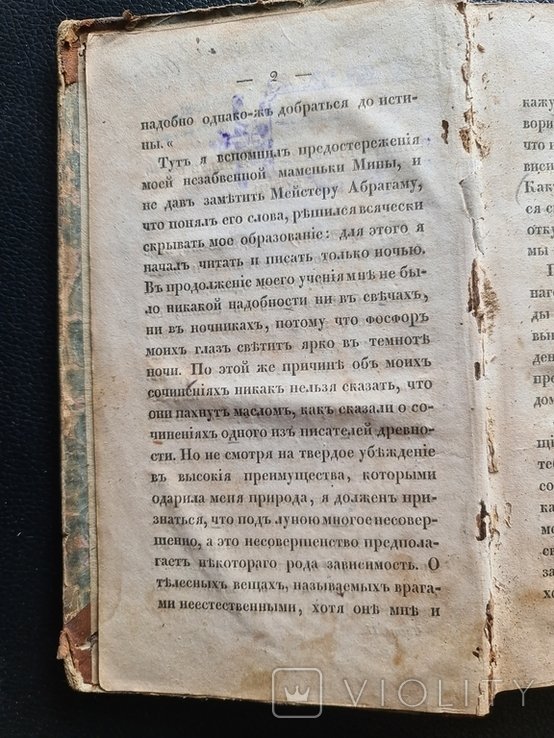 — 2 —
надобно однако-жъ добраться до исти-
ны.«
Тутъ я вспомнилъ предостереженія
моей незабвенной маменьки Мины, и
не давъ замѣтить Мейстеру Абрагаму,
что понялъ его слова, рѣшился всячески
скрывать мое образованіе: для этого я
началъ читать и писать только ночью.
Въ продолженіе моего ученія мнѣ не бы-
ло никакой надобности ни въ свѣчахъ,
ни въ ночникахъ, потому что фосфоръ
моихъ глазъ свѣтитъ ярко въ темнотѣ
ночи. По этой же причинѣ объ моихъ
сочиненіяхъ никакъ нельзя сказать, что
они пахнутъ масломъ, какъ сказали о со-
чиненіяхъ одного изъ писателей древно-
сти. Но не смотря на твердое убѣжденіе
въ высокія преимущества, которыми
одарила меня природа, я долженъ приз-
знаться, что подъ луною многое несовер-
шенно, а это несовершенство предпола-
гаетъ нѣкотораго рода зависимость. О
тѣлесныхъ вещахъ, называемыхъ врага-
ми неестественными, хотя онѣ мнѣ и
кажу
вори
что н
виси
Какъ
ся с
отку
мы
наго
ды
вын
нед
про
дом
щі
те
со
ка
мо
сн
за
хо
VIOLITY